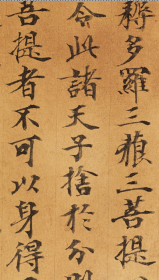 耨多羅三藐三菩提
令此諸天子捨於分別
菩提者不可以身得